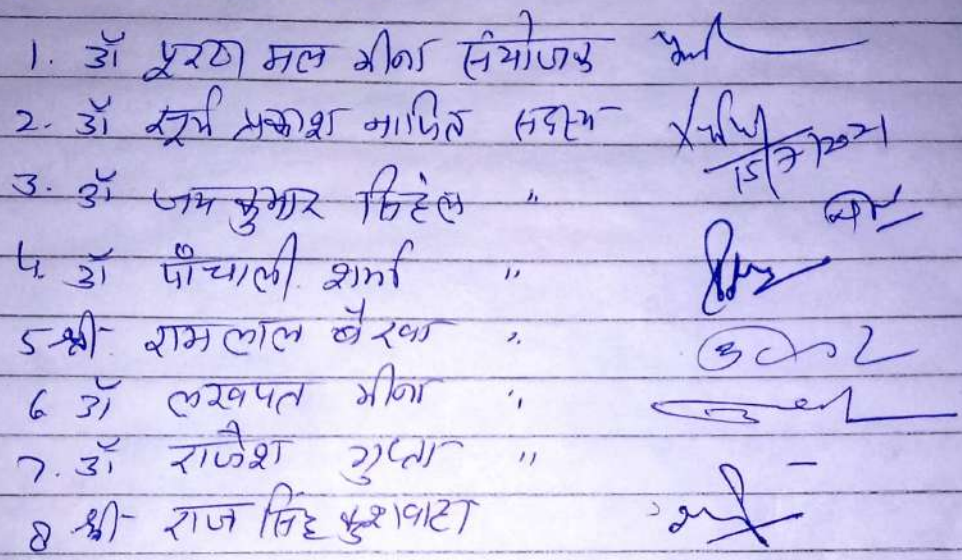 1. डॉ पूरण मल मीना संयोजक
2. डॉ सूर्य प्रकाश नापित सदस्य
15/7/2021
3. डॉ जय कुमार सिहेल "
4. डॉ पाँचाली शर्मा "
5 श्री रामलाल बैरवा "
6 डॉ लखपत मीना "
7. डॉ राजेश गुप्ता "
8 श्री राज सिंह कुशवाहा